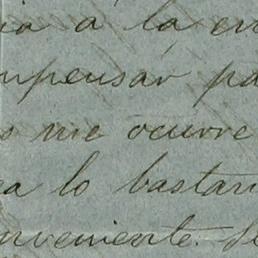 ia á la en
mpensar pa
s me ocurre
ea lo bastan
nveniente. Si